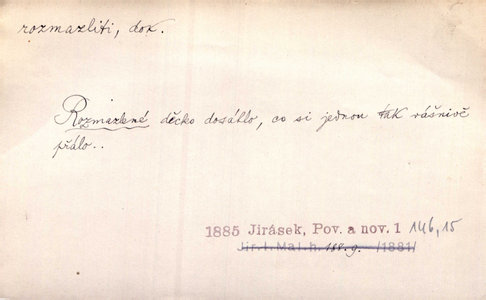 rozmazliti, dok.
Rozmazlené děcko dosáhlo, co si jednou tak vášnivě
přálo..
1885 Jirásek, Pov. a nov. 1 146,15
Jir. I. Mal. h. 188.9. /1881/